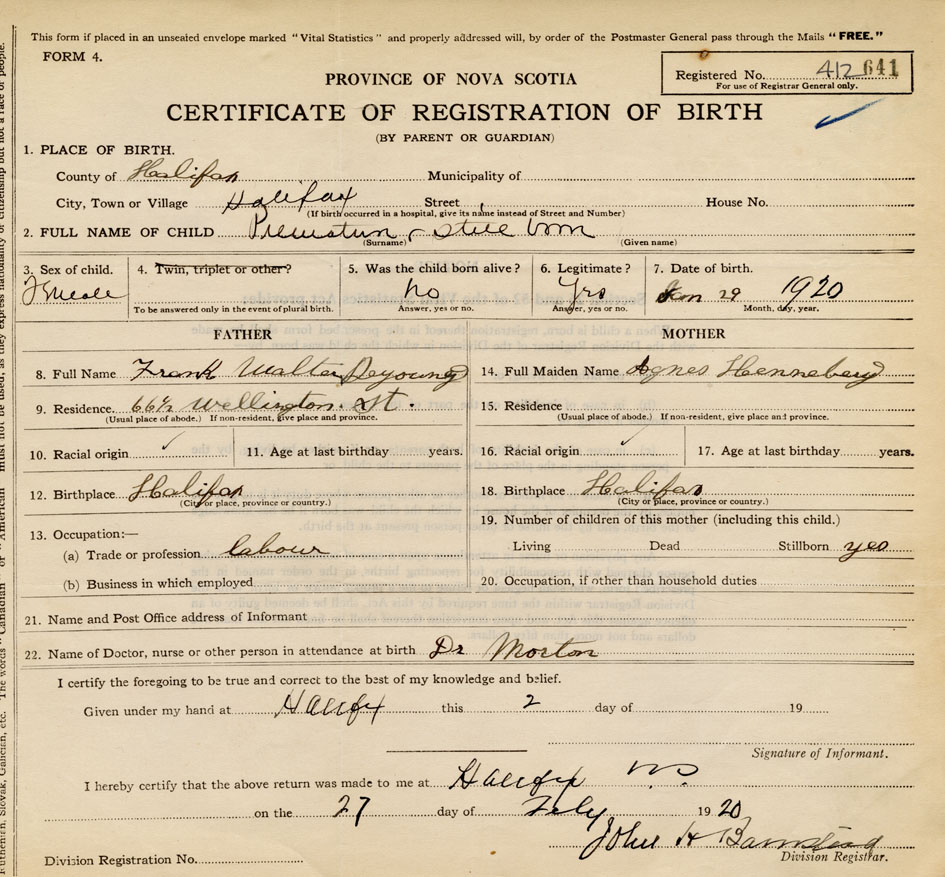 This form if placed in an unsealed envelope marked "Vital Statistics" and properly addressed will, by order of the Postmaster General pass through the Mails "FREE."
FORM 4.
Registered No. 412 641
For use of Registrar General only.
PROVINCE OF NOVA SCOTIA
CERTIFICATE OF REGISTRATION OF BIRTH
(BY PARENT OR GUARDIAN)
1. PLACE OF BIRTH.
County of Halifax Municipality of
City, Town or Village Halifax Street House No.
(If birth occurred in a hospital, give its name instead of Street and Number)
2. FULL NAME OF CHILD Premature - still born
(Surname) (Given name)
3. Sex of child. 4. Twin, triplet or other? 5. Was the child born alive? 6. Legitimate? 7. Date of birth.
Female No Yes Jan 29 1920
To be answered only in the event of plural birth. Answer, yes or no. Answer, yes or no. Month, day, year.
FATHER MOTHER
8. Full Name Frank Walter Deyoung 14. Full Maiden Name Agnes Henneberg
9. Residence. 66½ Wellington St. 15. Residence
(Usual place of abode.) If non-resident, give place and province. (Usual place of abode.) If non-resident, give place and province.
10. Racial origin 11. Age at last birthday years. 16. Racial origin 17. Age at last birthday years.
12. Birthplace Halifax 18. Birthplace Halifax
(City or place, province or country.) (City or place, province or country.)
13. Occupation:— 19. Number of children of this mother (including this child.)
(a) Trade or profession labour Living Dead Stillborn yes
(b) Business in which employed 20. Occupation, if other than household duties
21. Name and Post Office address of Informant
22. Name of Doctor, nurse or other person in attendance at birth Dr Morton
I certify the foregoing to be true and correct to the best of my knowledge and belief.
Given under my hand at Halifax this 2 day of 19
Signature of Informant.
I hereby certify that the above return was made to me at Halifax NS
on the 27 day of Feby 1920
John H Barnstead
Division Registration No. Division Registrar.